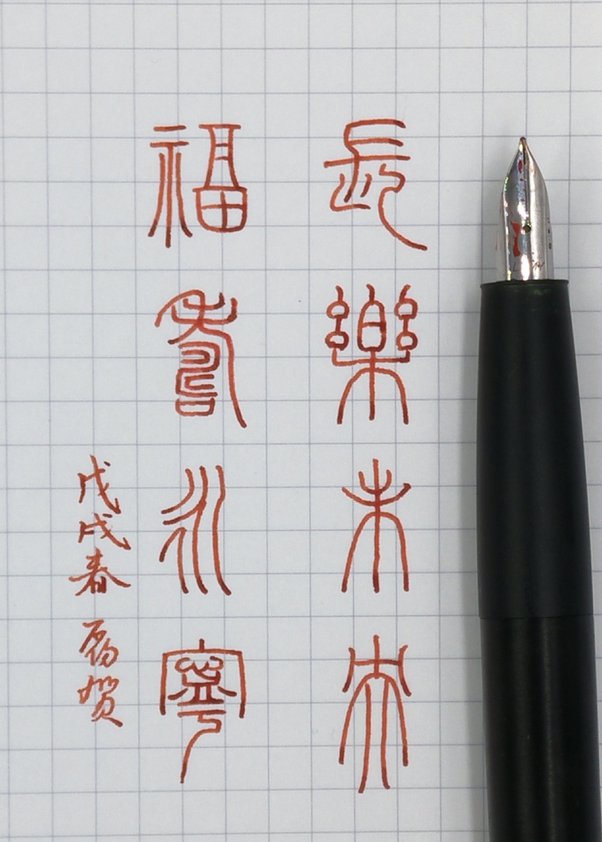 長樂未央
福壽永寧
戊戌春
賀